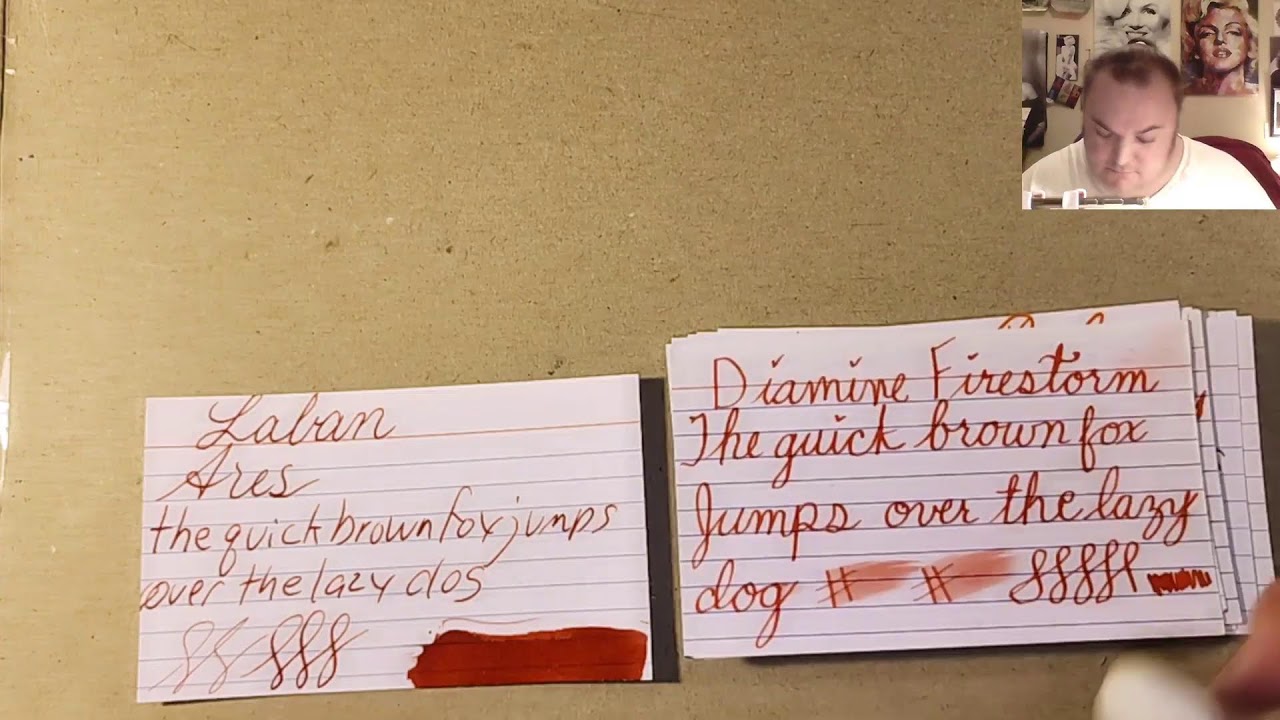 Laban
Ares
the quick brown fox jumps
over the lazy dog
Diamine Firestorm
The quick brown fox
Jumps over the lazy
dog # #